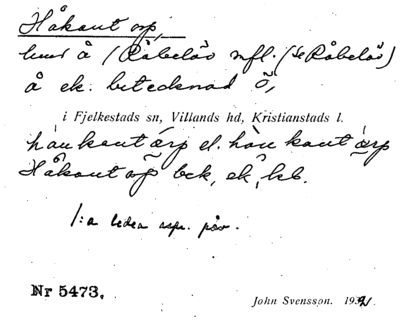 Håkantorp,
hmd å (Råbelöv mfl. (se Råbelöv)
å ek. betecknad Ö,
i Fjelkestads sn, Villands hd, Kristianstads l.
hånkantärp el. hånkantärp
Håkantorp bck, ek, kb.
1:a leden
Nr 5473.
John Svensson. 1931.